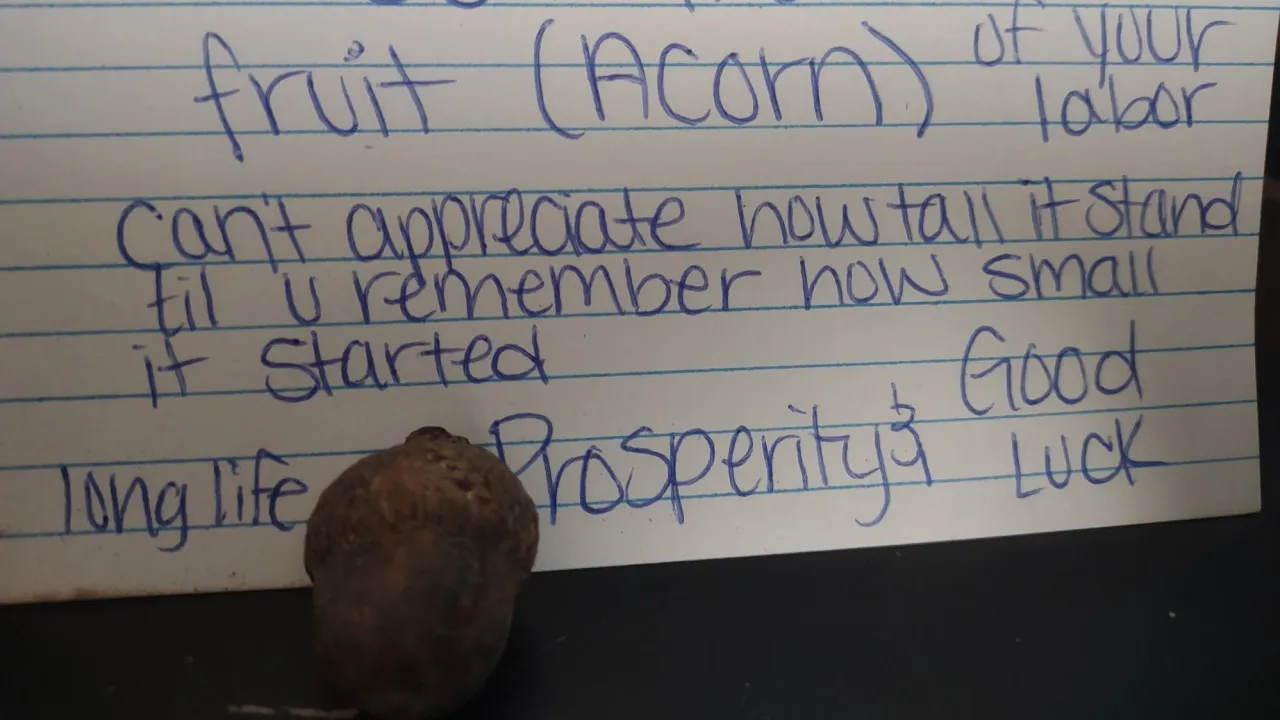 fruit (Acorn) of your labor
can't appreciate how tall it stand
til u remember how small
it started
long life Prosperity & Good Luck